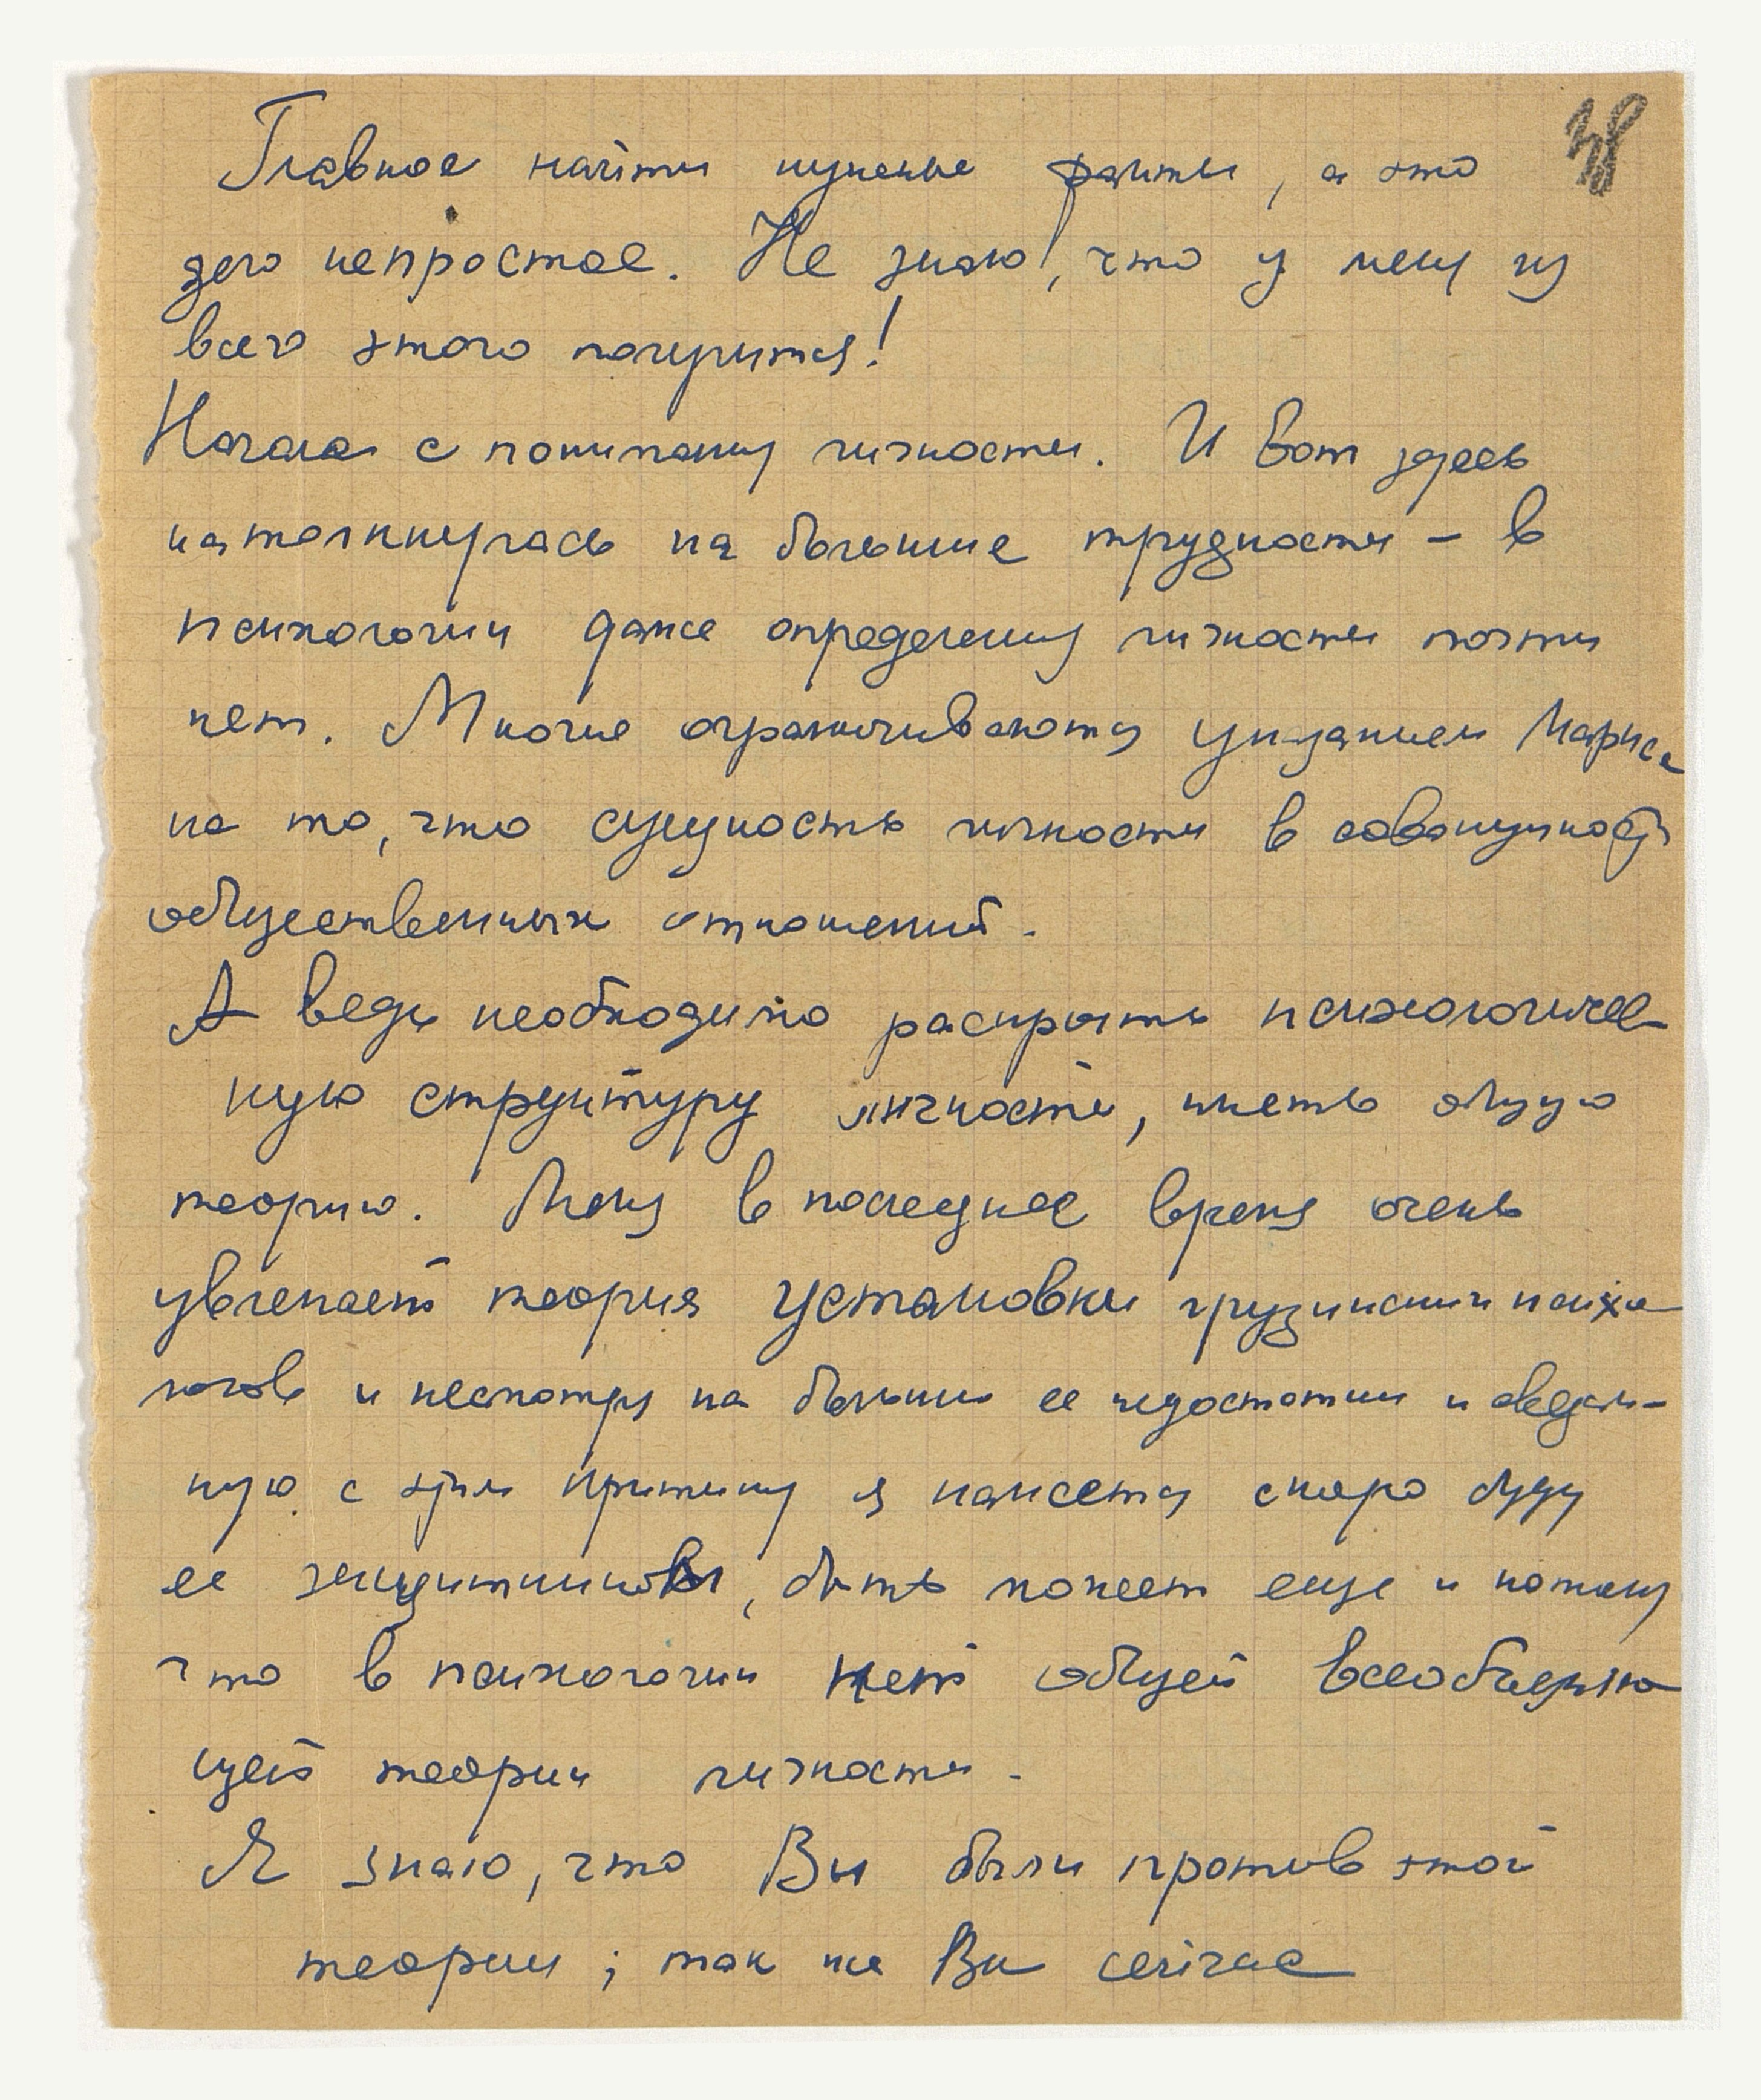 38
Главное найти нужные факты, а это
дело непростое. Не знаю, что у меня из
всего этого получится!
Начала с понимания личности. И вот здесь
натолкнулась на большие трудности – в
психологии даже определения личности почти
нет. Многие ограничиваются указанием Маркса
на то, что сущность личности в совокупности
общественных отношений.
А ведь необходимо раскрыть психологичес-
кую структуру личности, иметь общую
теорию. Меня в последнее время очень
увлекает теория установки грузинских психо-
логов и несмотря на большие ее недостатки и
с этим критику я кажется скоро буду
ее защитником, быть может еще и потому
что в психологии нет общей всеобъемлю-
щей теории личности.
Я знаю, что Вы были против этой
теории; так же Вы сейчас